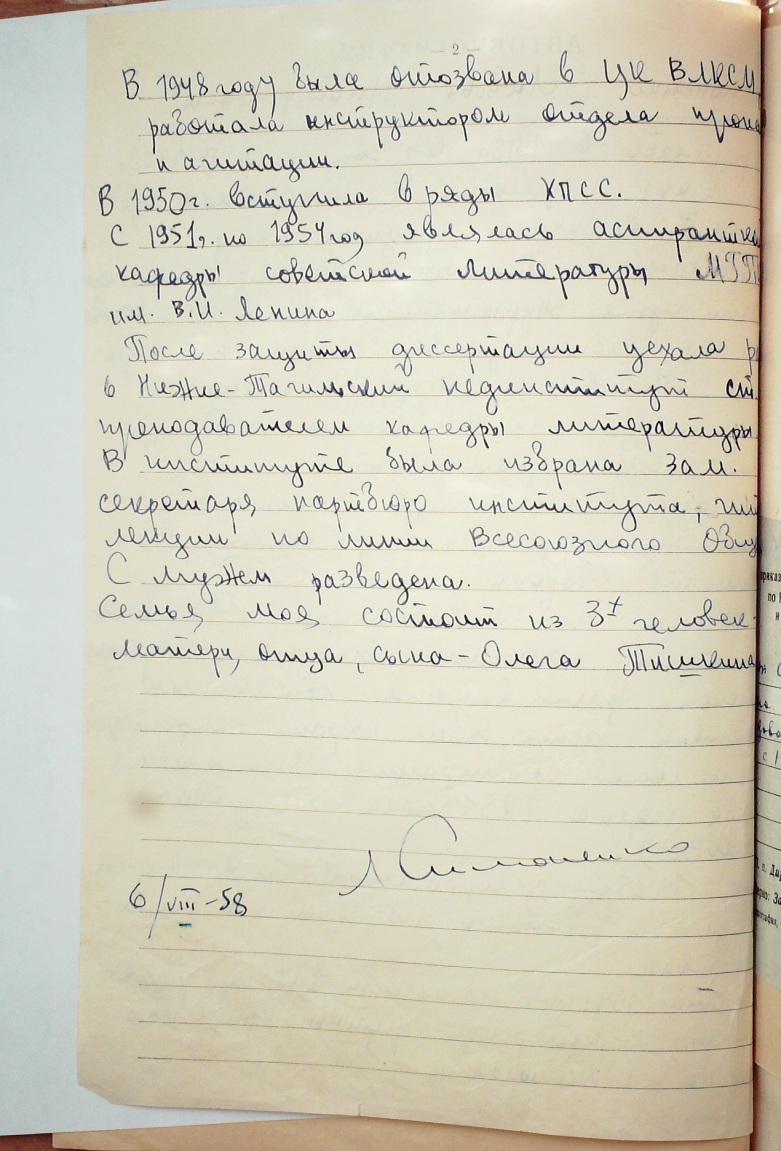 — 2 —
В 1948 году была отозвана в ЦК ВЛКСМ
работала инструктором отдела пропа
и агитации.
В 1950г. вступила в ряды КПСС.
С 1951г. по 1954 год являлась аспирантко
кафедры советской литературы МГП
им. В.И. Ленина
После защиты диссертации уехала р
в Нижне-Тагильский пединститут ст.
преподавателем кафедры литературы
В институте была избрана зам.
секретаря партбюро института, чит
лекции по линии Всесоюзного Общ
С мужем разведена.
Семья моя состоит из 3х человек-
матери, отца, сына - Олега Тишкина
Л Симоненко
6/VIII-58